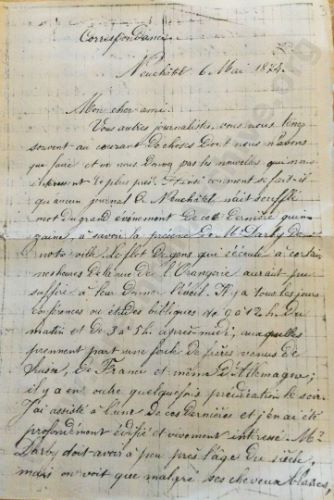 Correspondance.
Neuchâtel 6. Mai 1874.
Mon cher ami.
Vous autres journalistes, vous nous tenez
souvent au courant de choses dont nous n'avons
que faire et ne nous donnez pas les nouvelles qui nous
intéressent de plus près. Ainsi comment se fait-il
qu'aucun journal de Neuchâtel n'ait soufflé
mot du grand évènement de cette dernière quin-
zaine, à savoir la présence de Mr Darby dans
notre ville. Le flot de gens qui s'écoule à certai-
nes heures de la rue de l'Orangerie aurait pu
suffire à leur donner l'éveil. Il y a tous les jours
conférences ou études bibliques de 9 à 12 h. du
matin et de 3 à 5 h. après midi, auxquelles
prennent part une foule de frères venus de
Suisse, de France et même d'Allemagne;
il y a en outre quelquefois prédication le soir.
J'ai assisté à l'une de ces dernières et j'en ai été
profondément édifié et vivement intéressé. Mr
Darby doit avoir à peu près l'âge du siècle,
mais on voit que malgré ses cheveux blancs,